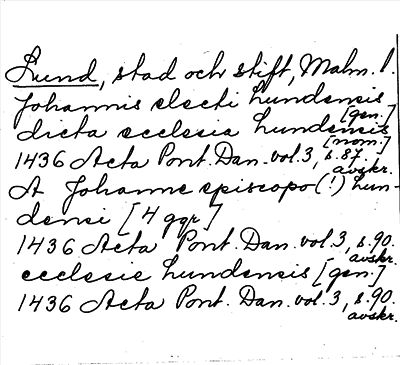 Lund, stad och stift, Malm. l.
Johannis electi Lundensis
[gen.]
dicta ecclesia Lundensis
[nom.]
1436 Acta Pont. Dan. vol. 3, s. 87.
avskr.
A Johanne episcopo (!) Lun-
densi [4 ggr]
1436 Acta Pont. Dan. vol. 3, s. 90.
avskr.
ecclesie Lundensis [gen.]
1436 Acta Pont. Dan. vol. 3, s. 90.
avskr.